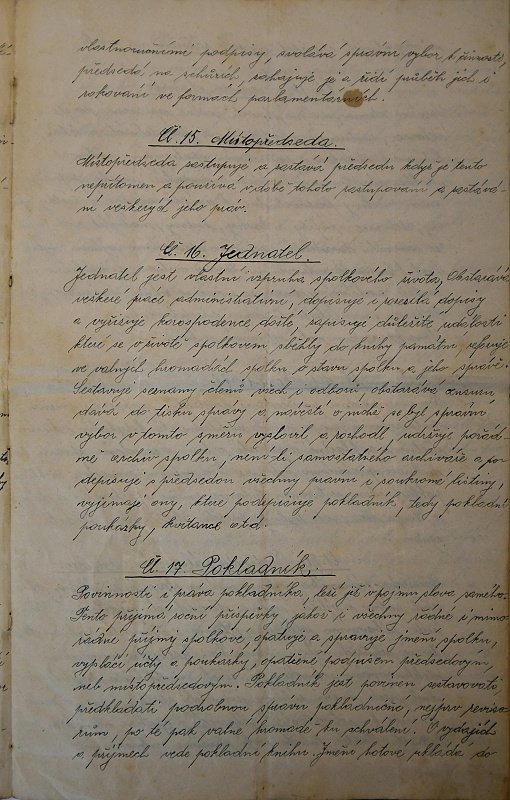 vlastnoručními podpisy, svolává správní výbor k činnosti,
předsedá na schůzích, zahajuje je a řídí průběh jich i
rokování ve formách parlamentárních.
Čl. 15. Místopředseda.
Místopředseda zastupuje a zastává předsedu když je tento
nepřítomen a používá v době tohoto zastupování a zastává-
ní veškerých jeho práv.
Čl. 16. Jednatel.
Jednatel jest vlastní vzpruha spolkového života. Obstarává
veškeré práce administrativní, dopisuje i rozesílá dopisy
a vyřizuje korespodence došlé, zapisuje důležité události
které se v životě spolkovem sběhly do knihy pamětní referuje
ve valných hromadách spolku o stavu spolku a jeho správě.
Sestavuje seznamy členů všech i odborů obstarává censuru
dává do tisku zprávy a návěští o nichž se byl správní
výbor v tomto směru vyslovil a rozhodl, udržuje pořád-
mě archiv spolku, není-li samostatného archiváře a po-
depisuje s předsedou všechny právní i soukromé listiny,
vyjímaje ony, které podepisuje pokladník, tedy pokladní
poukázky, kvitance atd.
Čl. 17. Pokladník.
Povinnosti i práva pokladníka, leží již v pojmu slova samého.
Tento přijímá roční příspěvky jakož i všechny řádné i mimo
řádné příjmy spolkové, opatruje a spravuje jmění spolku,
vyplácí účty a poukázky, opatřené podpisem předsedovým,
neb místopředsedovým. Pokladník jest povinen sestavovati
předkládati podrobnou zprávu pokladniční, nejprv reviso-
rům, po té pak valné hromadě ku schválení. O vydajích
a příjmech vede pokladní knihu. Jmění hotové ukládá do